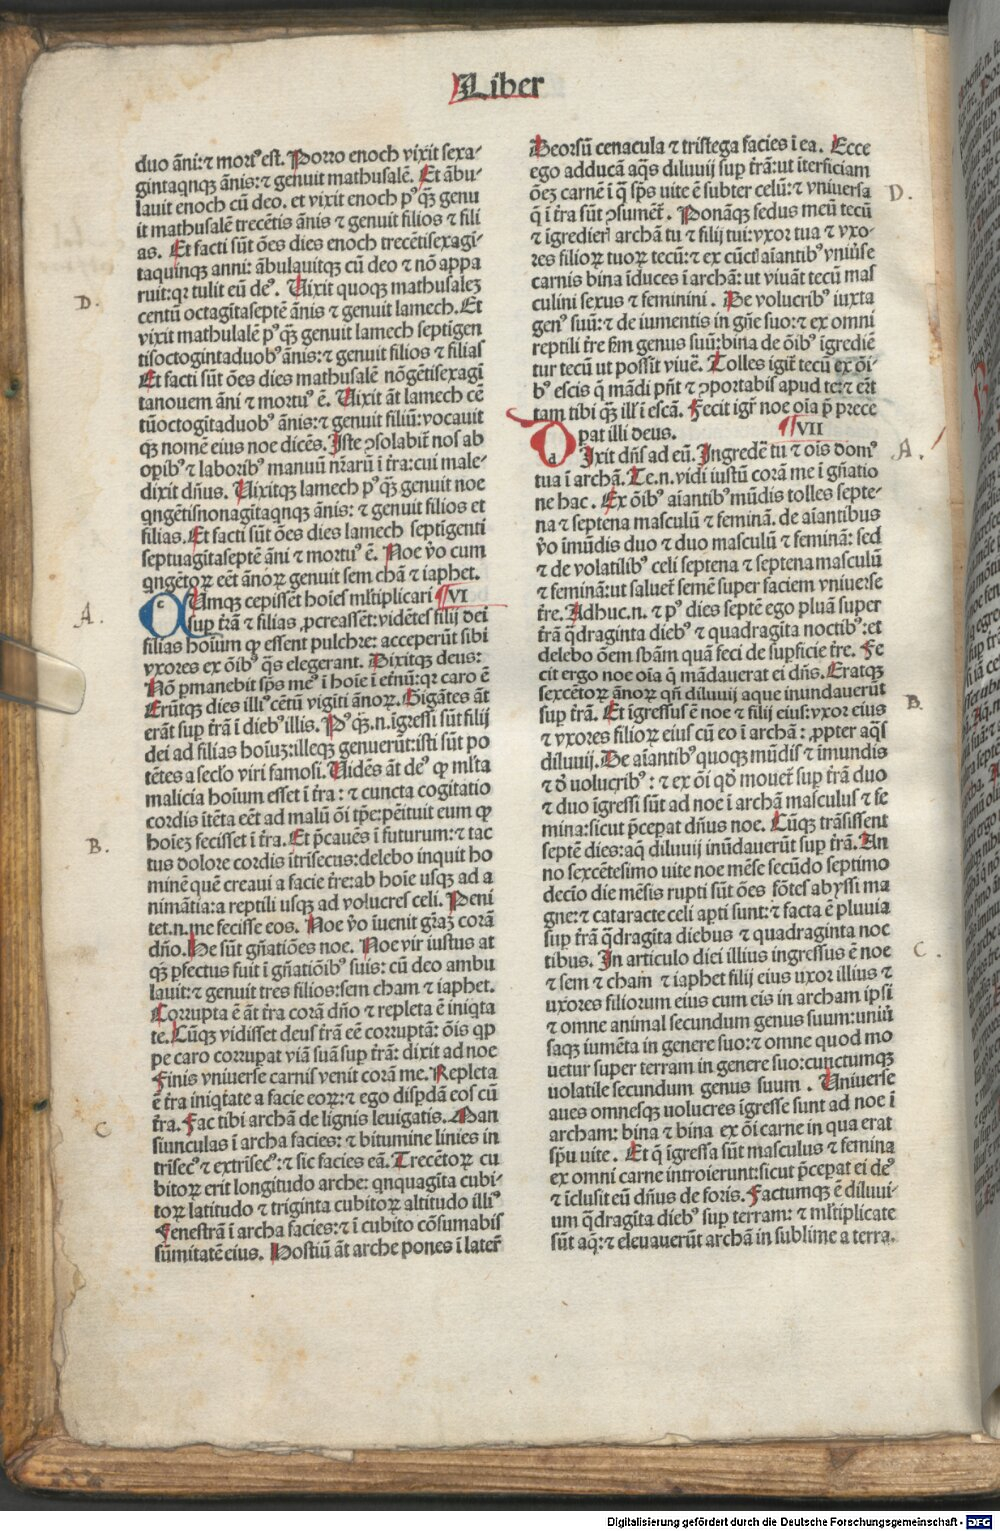 Liber
duo āni:⁊ mortꝰ est. Porro enoch vixit sexa-
gintaqnqꝫ ānis:⁊ genuit mathusalē. Et ābu-
lauit enoch cū deo. et vixit enoch pꝰ qꝫ̄ genu
it mathusalē trecētis ānis ⁊ genuit filios ⁊ fili
as. Et facti sūt ōes dies enoch trecētisexagi-
taquinqꝫ anni: ābulauitqꝫ cū deo ⁊ nō appa
ruit:qꝛ tulit eū deꝰ. Vixit quoqꝫ mathusaleꝫ
centū octagītaseptē ānis ⁊ genuit lamech. Et
vixit mathulalē pꝰ qꝫ̄ genuit lamech septīgen
tisoctogintaduobꝰ ānis:⁊ genuit filios ⁊ filias
Et facti sūt ōes dies mathusalē nōgētisexagī
tanouem āni ⁊ mortuꝰ ē. Vixit āt lamech cē
tūoctogītaduobꝰ ānis:⁊ genuit filiū:vocauit
qꝫ nomē eius noe dicēs. Iste ꝯsolabit̄ nos ab
opibꝰ ⁊ laboribꝰ manuū nr̄arū ī t̄ra:cui male-
dixit dn̄us. Vixitqꝫ lamech pꝰ qꝫ̄ genuit noe
qngētisnonagītaqnqꝫ ānis: ⁊ genuit filios et
filias. Et facti sūt ōes dies lamech septīgenti
septuagītaseptē āni ⁊ mortuꝰ ē. Noe v̄o cum
qngētoꝝ eēt ānoꝝ genuit sem chā ⁊ iaphet.
Vmqꝫ cepissēt hoīes ml̄tiplicari ¶VI
sup t̄rā ⁊ filias ꝓcreassēt:vidētes filij dei
filias hoīum ꝙ essent pulchre: acceperūt sibi
vxores ex ōibꝰ q̄s elegerant. Dixitqꝫ deus:
Nō ꝑmanebit sp̄s meꝰ ī hoīe ī et̄nū:qꝛ caro ē
Erūtqꝫ dies illiꝰ cētū vigīti ānoꝝ. Gigātes āt
erāt sup t̄rā ī diebꝰ illis. Pꝰ qꝫ̄.n.īgressi sūt filij
dei ad filias hoīuꝫ:illeqꝫ genuerūt:isti sūt po
tētes a secl̄o viri famosi. Vidēs āt deꝰ ꝙ ml̄ta
malicia hoīum esset ī t̄ra : ⁊ cuncta cogitatio
cordis ītēta eēt ad malū ōi tp̄e:pēituit eum ꝙ
hoīeꝫ fecisset ī t̄ra. Et p̄cauēs ī futurum:⁊ tac
tus dolore cordis ītrīsecus:delebo inquit ho
minē quē creaui a facie t̄re:ab hoīe usqꝫ ad a
nimātia:a reptili usqꝫ ad volucres celi. Peni
tet.n.me fecisse eos. Noe v̄o īuenit gr̄aꝫ corā
dn̄o. He sūt gn̄atiōes noe. Noe vir iustus at
qꝫ ꝑfectus fuit ī gn̄atiōibꝰ suis: cū deo ambu
lauit:⁊ genuit tres filios:sem cham ⁊ iaphet.
Corrupta ē āt t̄ra corā dn̄o ⁊ repleta ē iniqta
te. Cūqꝫ vidisset deus t̄rā eē corruptā: ōis qꝑ
pe caro corruꝑat viā suā sup t̄rā: dixit ad noe
Finis vniuerse carnis venit corā me. Repleta
ē t̄ra iniqtate a facie eoꝝ:⁊ ego disꝑdā eos cū
t̄ra. Fac tibi archā de lignis leuigatis. Man
siunculas ī archa facies: ⁊ bitumine linies in
trīsecꝰ ⁊ extrīsecꝰ:⁊ sic facies eā. Trecētoꝝ cu
bitoꝝ erit longitudo arche: qnquagīta cubi-
toꝝ latitudo ⁊ triginta cubitoꝝ altitudo illiꝰ
Fenestrā ī archa facies:⁊ ī cubito cōsumabis
sūmitatē eius. Hostiū āt arche pones ī later̄
Deorsū cenacula ⁊ tristega facies ī ea. Ecce
ego adducā aq̄s diluuij sup t̄rā:ut īterficiam
ōeꝫ carnē ī q̄ sp̄s uite ē subter celū:⁊ vniuersa
q̄ ī t̄ra sūt ꝯsumēt̄. Ponāqꝫ fedus meū tecū
⁊ īgredier̄ archā tu ⁊ filij tui:vxor tua ⁊ vxo-
res filioꝝ tuoꝝ tecū:⁊ ex cūctꝭ aīantibꝰ vniūse
carnis bina īduces ī archā: ut viuāt tecū mas
culini sexus ⁊ feminini . De volucribꝰ iuxta
genꝰ suū:⁊ de iumentis in gn̄e suo:⁊ ex omni
reptili t̄re ẜm genus suū:bina de ōibꝰ īgrediē
tur tecū ut possīt viuē. Tolles igit̄ tecū ex ōi-
bꝰ escis q̄ mādi pn̄t ⁊ ꝯportabis apud te:⁊ er̄t
tam tibi qꝫ̄ illꝭ ī escā. Fecit igr̄ noe oīa p̄ prece
pat illi deus. ¶VII
Ixit dn̄s ad eū. Ingredē tu ⁊ oīs domꝰ
tua ī archā. Te.n.vidi iustū corā me ī gn̄atio
ne hac. Ex ōibꝰ aīantibꝰ mūdis tolles septe-
na ⁊ septena masculū ⁊ feminā. de aīantibus
v̄o īmūdis duo ⁊ duo masculū ⁊ feminā: sed
⁊ de volatilibꝰ celi septena ⁊ septena masculū
⁊ feminā:ut saluet̄ semē super faciem vniuerse
t̄re. Adhuc.n. ⁊ pꝰ dies septē ego pluā super
t̄rā q̄draginta diebꝰ ⁊ quadragīta noctibꝰ:et
delebo ōem sb̄am quā feci de supficie t̄re. Fe
cit ergo noe oīa q̄ mādauerat ei dn̄s. Eratqꝫ
sexcētoꝝ ānoꝝ qn̄ diluuij aque inundauerūt
sup t̄rā. Et īgressus ē noe ⁊ filij eius:vxor eius
⁊ vxores filioꝝ eius cū eo ī archā : ꝓpter aq̄s
diluuij. De aīantibꝰ quoqꝫ mūdis ⁊ īmundis
⁊ d̄ uolucribꝰ : ⁊ ex ōi qd̄ mouet̄ sup t̄rā duo
⁊ duo īgressi sūt ad noe ī archā masculus ⁊ fe
mina:sicut p̄cepat dn̄us noe. Cūqꝫ trāsissent
septē dies:aq̄ diluuij inūdauerūt sup t̄rā. An
no sexcētesimo uite noe mēse secūdo septimo
decīo die mēsis rupti sūt ōes fōtes abyssi ma
gne:⁊ cataracte celi apti sunt:⁊ facta ē pluuia
sup t̄rā q̄dragīta diebus ⁊ quadraginta noc
tibus. In articulo diei illius ingressus ē noe
⁊ sem ⁊ cham ⁊ iaphet filij eius uxor illius ⁊
uxores filiorum eius cum eis in archam ipsi
⁊ omne animal secundum genus suum:uniū
saqꝫ iumēta in genere suo:⁊ omne quod mo
uetur super terram in genere suo:cunctumqꝫ
uolatile secundum genus suum . Vniuerse
aues omnesqꝫ uolucres īgresse sunt ad noe ī
archam: bina ⁊ bina ex ōi carne in qua erat
sp̄u uite. Et q̄ īgressa sūt masculus ⁊ femina
ex omni carne introierunt:sicut p̄cepat ei deꝰ
⁊ īclusit eū dn̄us de foris. Factumqꝫ ē diluui-
um q̄dragīta diebꝰ sup terram: ⁊ ml̄tiplicate
sūt aq̄:⁊ eleuauerūt archā in sublime a terra.
D.
A.
B.
C
D.
A.
B.
C.
Digitalisierung gefördert durch die Deutsche Forschungsgemeinschaft - DFG